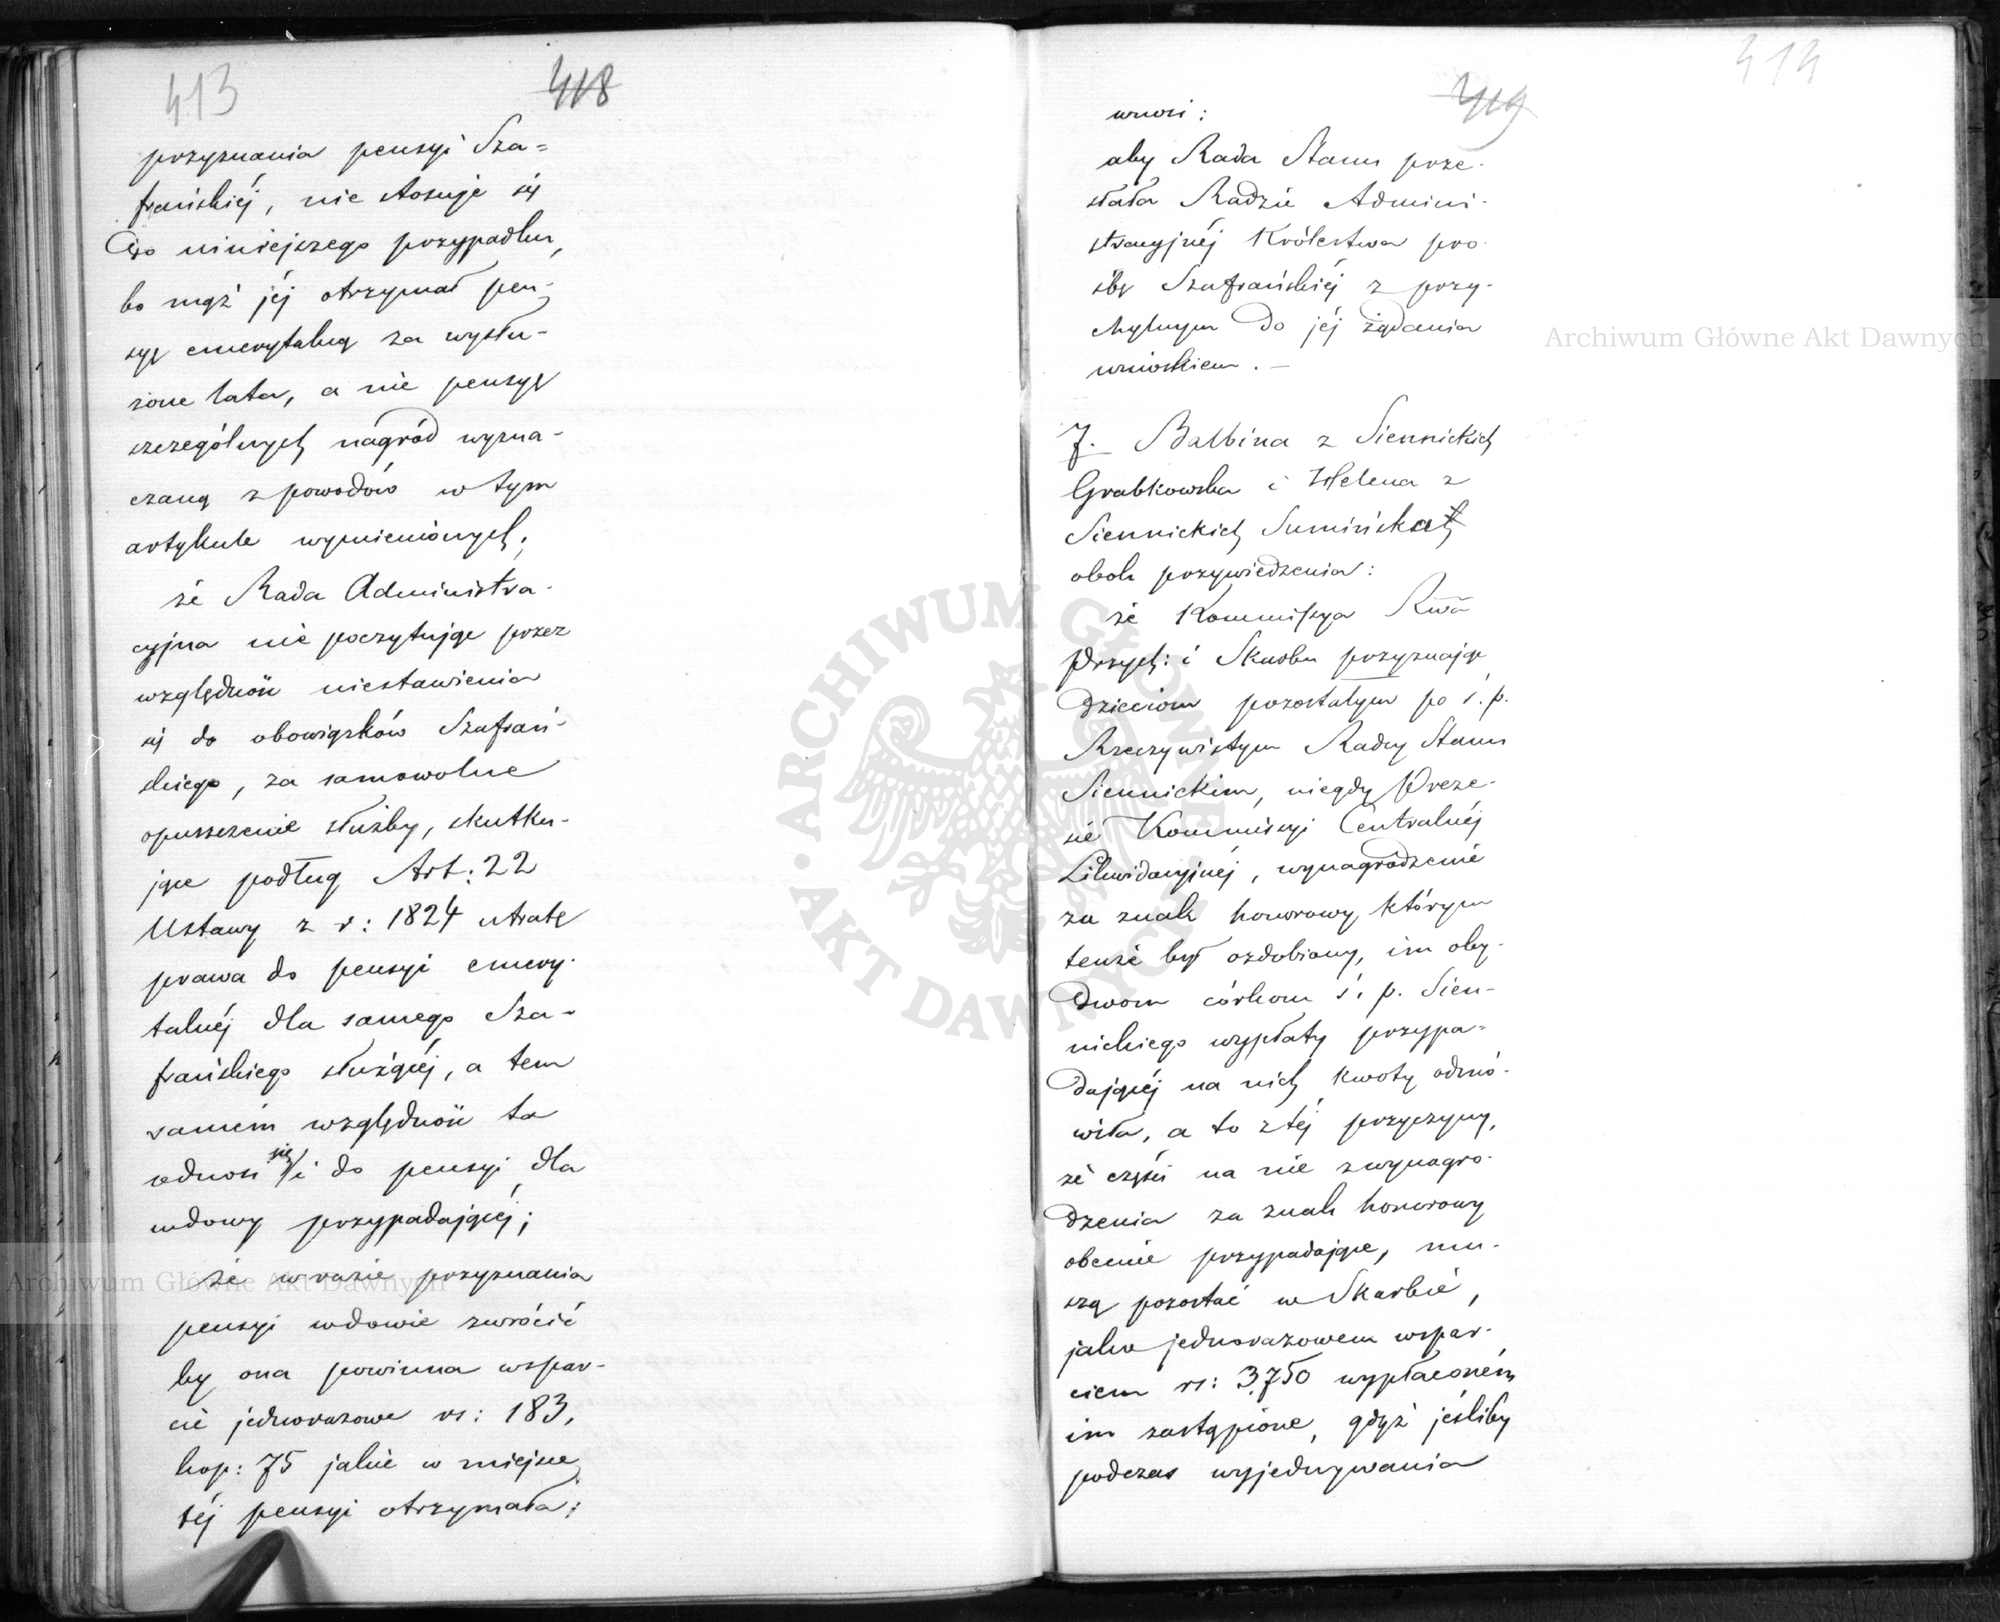 413
418
przyznania pensyi Sza=
frańskiéj, nie stosuje się
do niniejszego przypadku,
bo mąż jéj otrzymał pen-
syę emerytalną za wysłu-
żone lata, a nie pensyę
szczególnych nagród wyzna-
czaną z powodów w tym
artykule wymienionych;
że Rada Administra-
cyjna nie poczytując przez
wzgląd niestawienia
się do obowiązków Szafrań-
skiego, za samowolne
opuszczenie służby, skutku-
jące podług Art: 22
Ustawy z r: 1824 utratę
prawa do pensyi emery-
talnéj dla samego Sza-
frańskiego służącéj, a tem
samém względność ta
odnosi się i do pensyi dla
wdowy przypadającéj;
że w razie przyznania
pensyi wdowie zwrócić
by ona powinna wspar-
cie jednorazowe rs: 183,
kop: 75 jakie w miejsce
téj pensyi otrzymała;
414
419
wnosi:
aby Rada Stanu prze-
słała Radzie Admini-
stracyjnéj Królestwa pro-
śbę Szafrańskiéj z przy-
chylnym do jéj żądania
wnioskiem. —
7. Balbina z Siennickich
Grabkowska i Helena z
Siennickich Sumińska
obok przywiedzenia:
że Kommissya Rwa
Przych: i Skarbu przyznając
dzieciom pozostałym po ś. p.
Rzeczywistym Radcy Stanu
Siennickim, niegdy Preze-
sie Kommisyi Centralnéj
Likwidacyjnéj, wynagrodzenie
za znak honorowy, którym
tenże był ozdobiony, im oby-
dwom córkom ś. p. Sien-
nickiego wypłaty przypa-
dającéj na nich kwoty odmó-
wiła, a to z téj przyczyny,
że części na nie z wynagro-
dzenia za znak honorowy
obecnie przypadające, mu-
szą pozostać w Skarbie,
jako jednorazowem wspar-
ciem rs: 3,750 wypłaconém
im zastąpione, gdyż jeśliby
podczas wyjednywania
Archiwum Główne Akt Dawnych
Archiwum Główne Akt Dawnych
ARCHIWUM GŁÓWNE AKT DAWNYCH